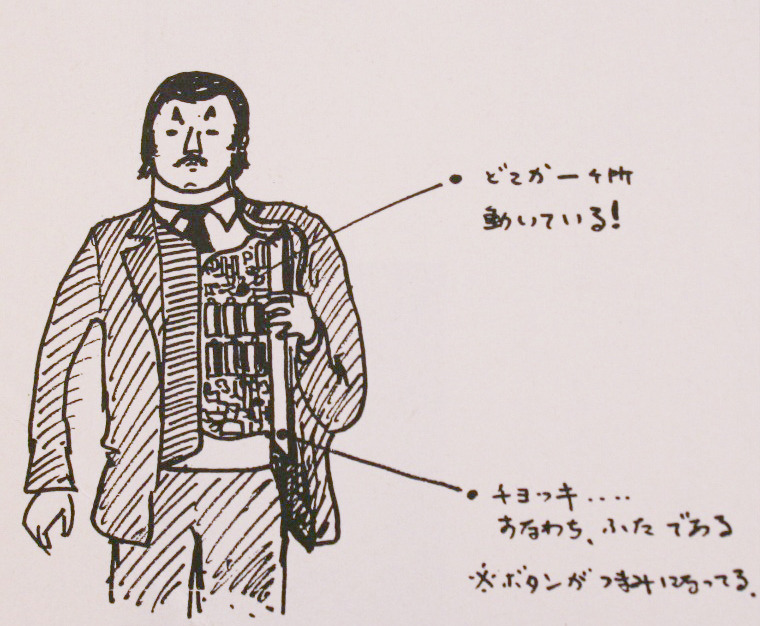 どこか一ヶ所
動いている!
チョッキ....
すなわち、ふたである
※ボタンがつまみになってる.